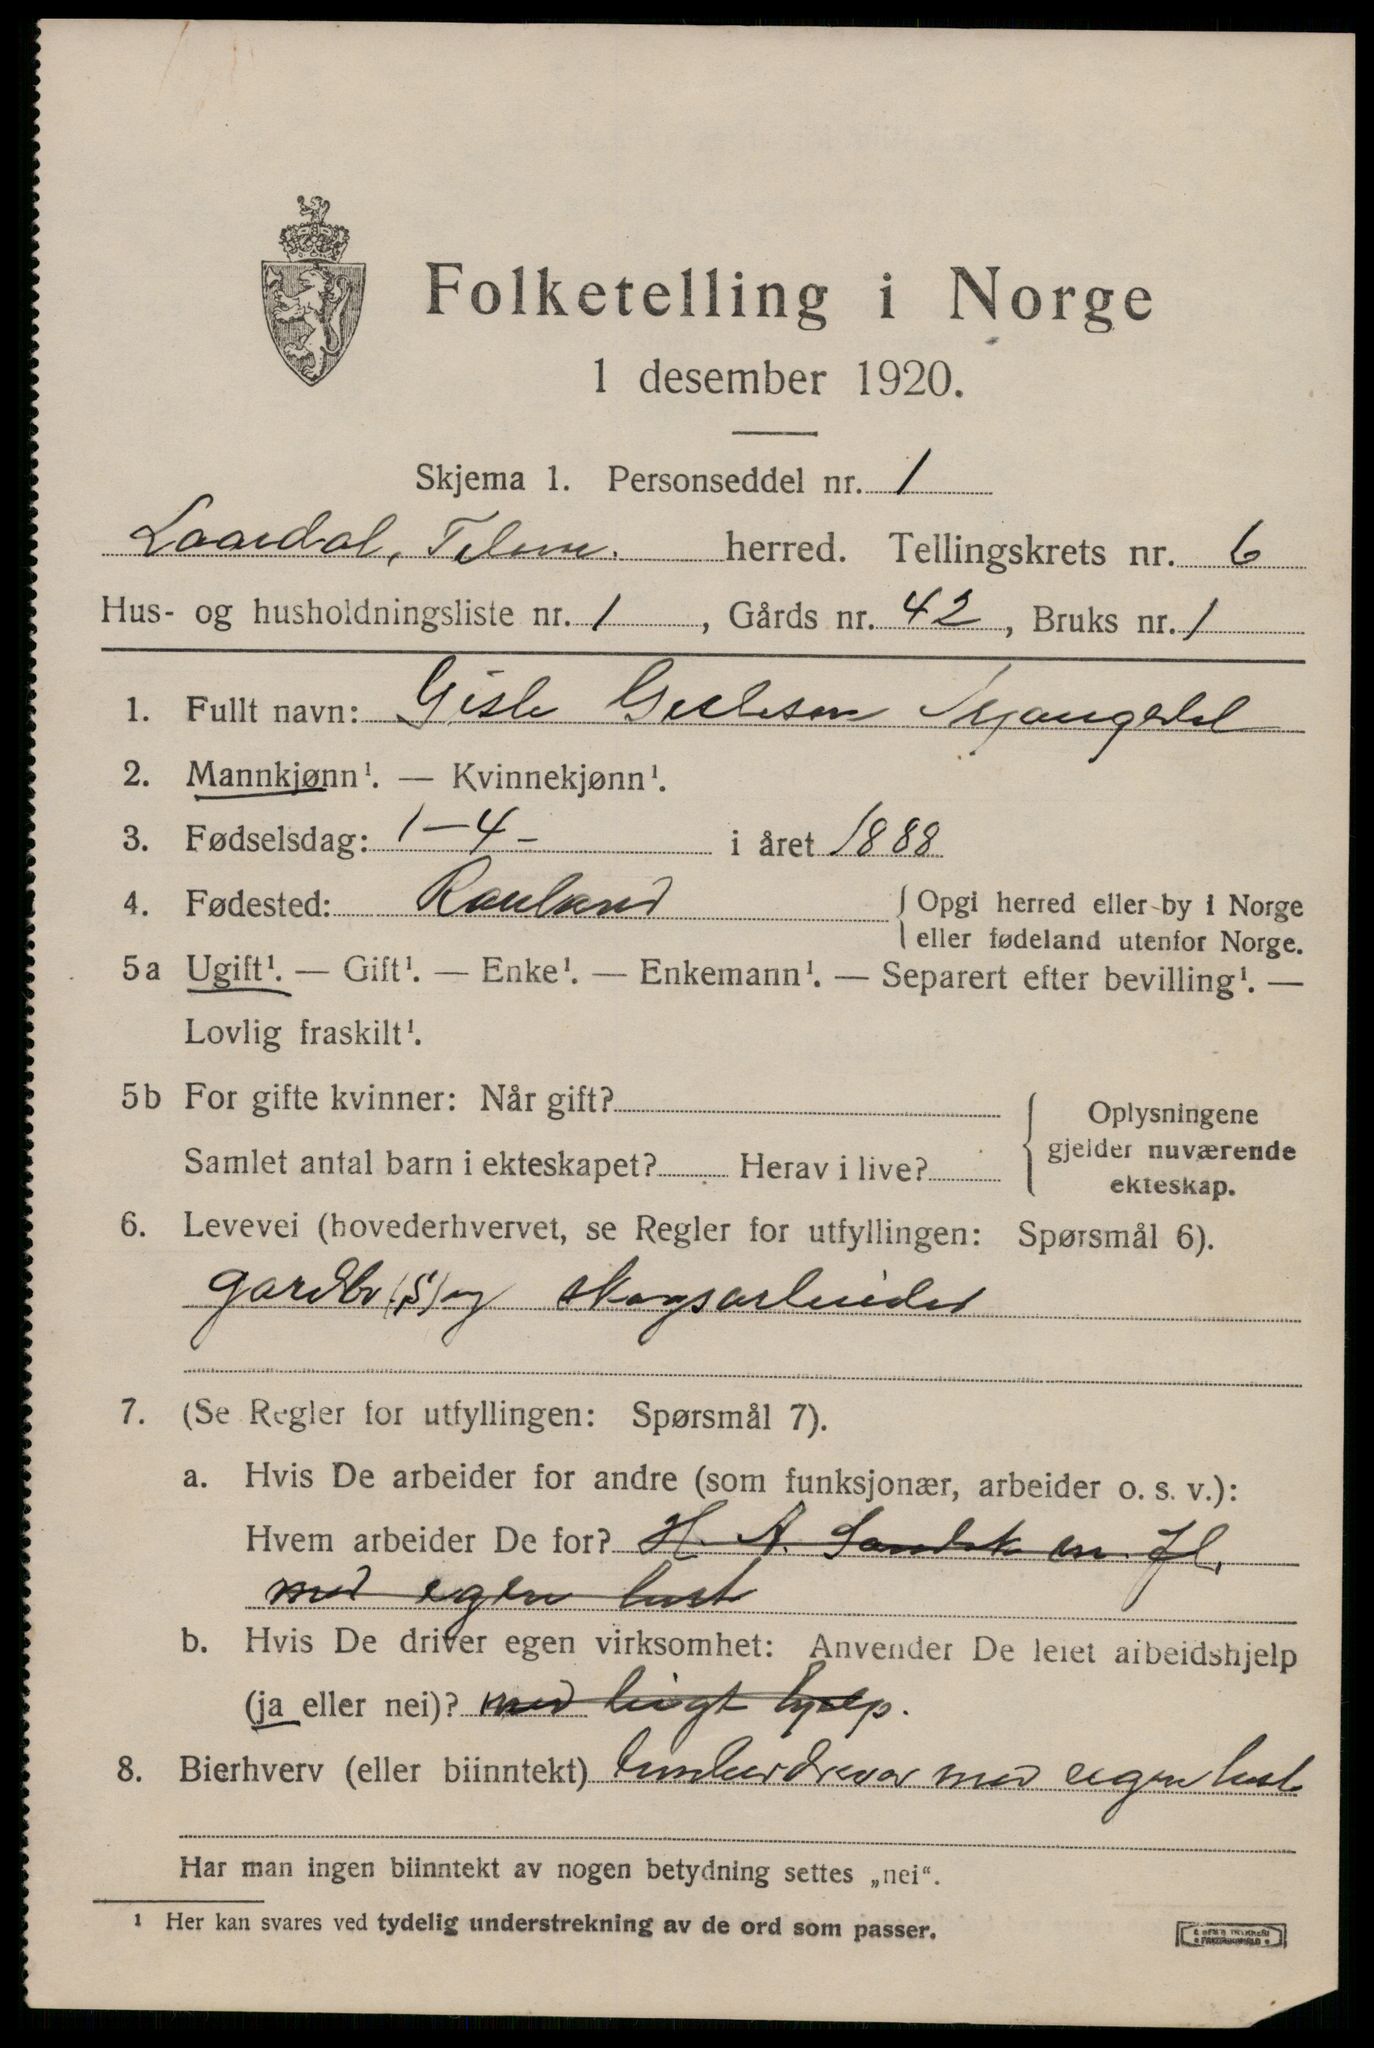 Folketelling i Norge
1 desember 1920.
Skjema 1. Personseddel nr. 1
Laardal, Telem. herred. Tellingskrets nr. 6
Hus- og husholdningsliste nr. 1, Gårds nr. 42, Bruks nr. 1
1. Fullt navn: Gisle Gisleson
2. Mannkjønn¹. — Kvinnekjønn¹.
3. Fødselsdag: 1-4- i året 1888
4. Fødested: Rauland { Opgi herred eller by i Norge
eller fødeland utenfor Norge.
5a Ugift¹. — Gift¹. — Enke¹. — Enkemann¹. — Separert efter bevilling¹. —
Lovlig fraskilt¹.
5b For gifte kvinner: Når gift?
Samlet antal barn i ekteskapet? Herav i live?
Oplysningene
gjelder nuværende
ekteskap.
6. Levevei (hovederhvervet, se Regler for utfyllingen: Spørsmål 6).
gardbr (S) og skogsarbeider
7. (Se Regler for utfyllingen: Spørsmål 7).
a. Hvis De arbeider for andre (som funksjonær, arbeider o. s. v.):
Hvem arbeider De for? H. A. m. fl.
med egen hest
b. Hvis De driver egen virksomhet: Anvender De leiet arbeidshjelp
(ja eller nei)? med leigt hjelp.
8. Bierhverv (eller biinntekt) med eigen hest
Har man ingen biinntekt av nogen betydning settes „nei“.
¹ Her kan svares ved tydelig understrekning av de ord som passer.